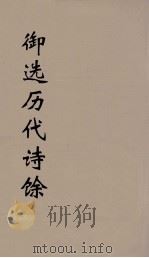 御选历代诗馀
www.mtoou.info